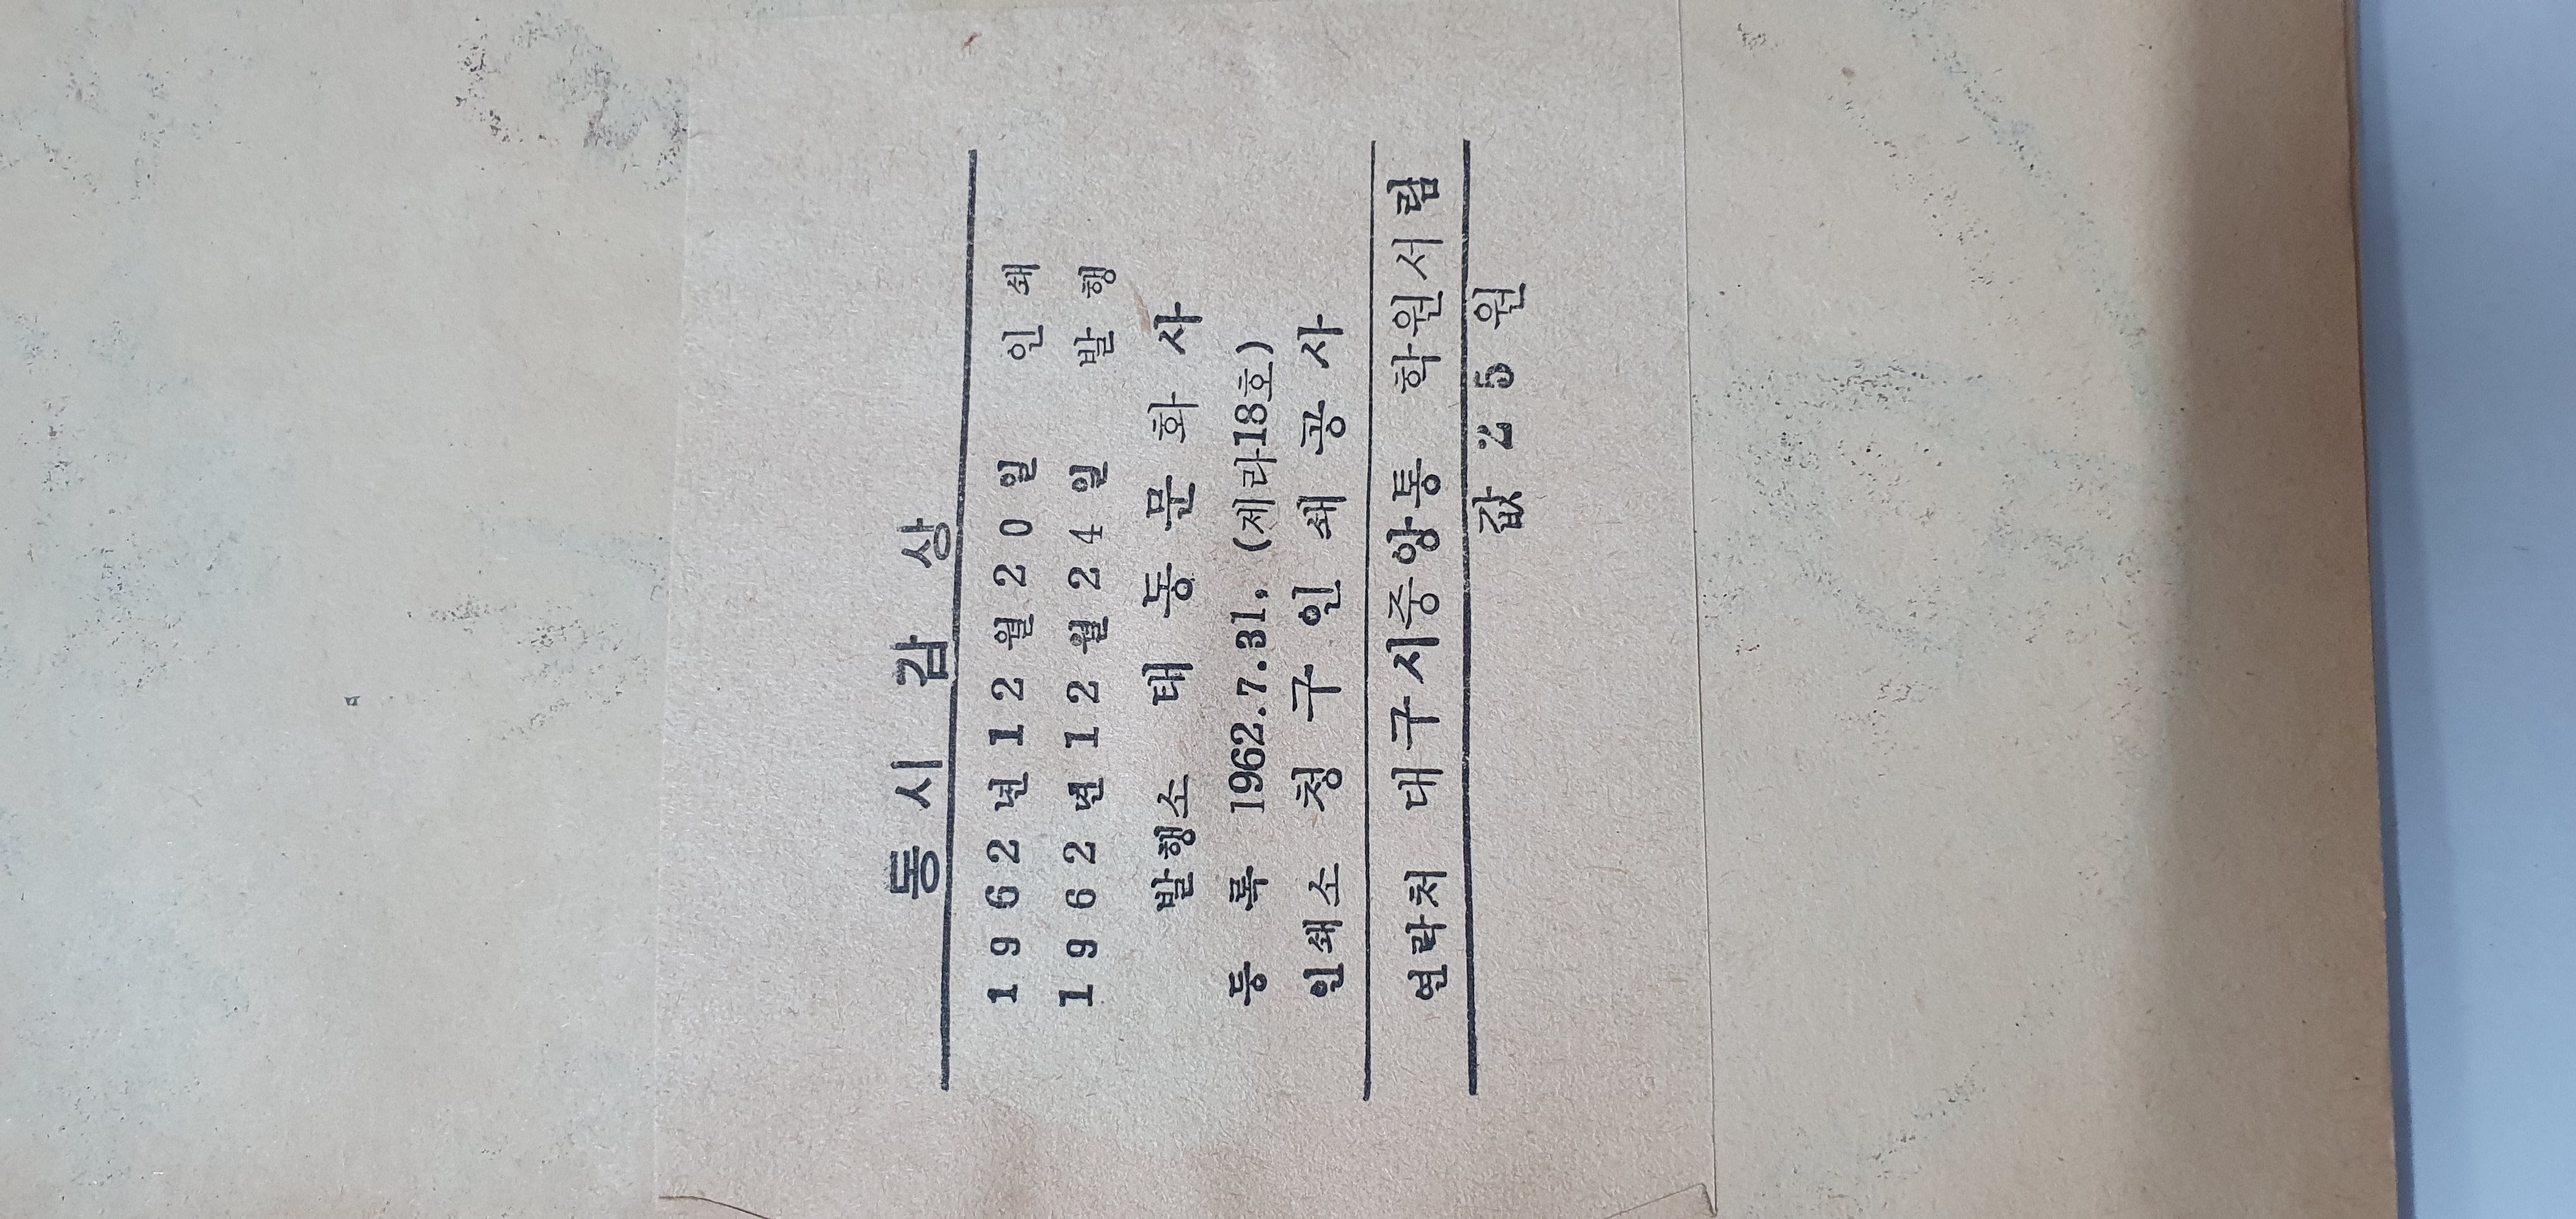 동 시 감 상
1962년12월20일 인 쇄
1962년12월24일 발 행
발행소 태 동 문 화 사
등 록 1962.7.31, (제라18호)
인쇄소 청 구 인 쇄 공 사
연락처 대구시중앙통 학원서림
값 25원